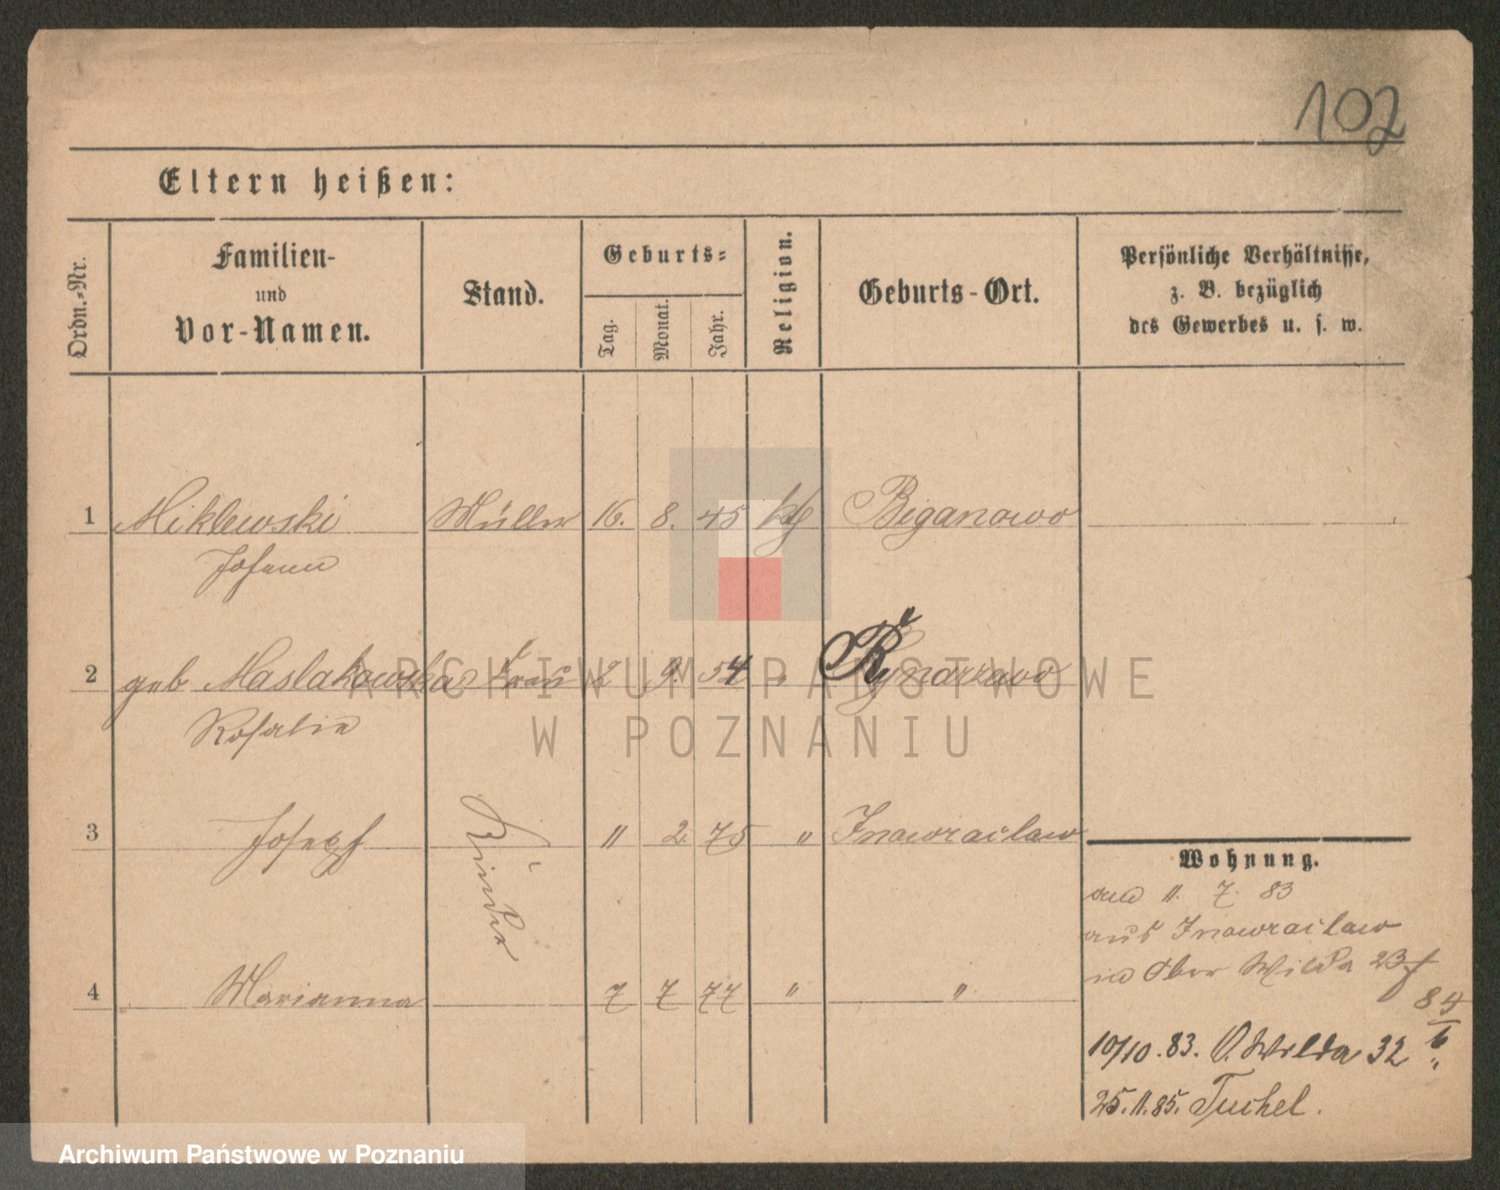 102
Eltern heißen:
Ordn.-Nr.
Familien-
und
Vor-Namen.
Stand.
Geburts-
Tag.
Monat.
Jahr.
Religion.
Geburts-Ort.
Persönliche Verhältnisse,
z. B. bezüglich
des Gewerbes u. s. w.
1 Miklewski Müller 16. 8. 45 kth Biganowo
Johann
2 geb Maslakowska Frau 2 9. 54 " Rynarzewo
Rosalie
3 Josepf Kinder " 2 75 " Inowraclaw
4 Marianna 7 7 77 " "
Wohnung.
11. 7. 83
aus Inowraclaw
in Ober Wilda 23
84
6
10/10.83. O. Wilda 32 "
25.11.85. Tuchel.
ARCHIWUM PAŃSTWOWE
W POZNANIU
Archiwum Państwowe w Poznaniu